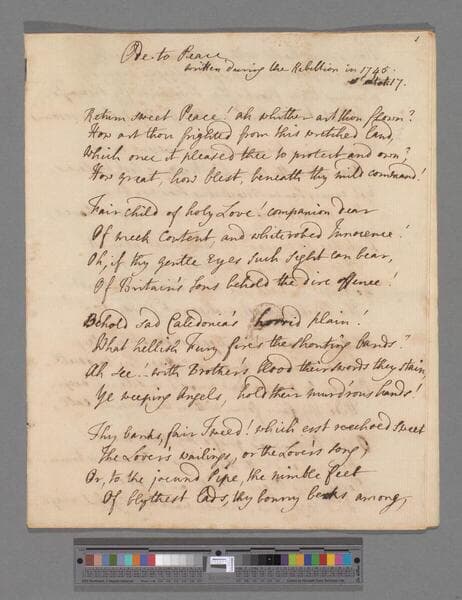 1
Ode to Peace
written during the Rebellion in 1745.
17.
Return sweet Peace! ah whither art thou flown?
How art thou frighted from this wretched land,
Which once it pleased thee to protect and own?
How great, how blest, beneath thy mild command!
Fair child of holy Love! companion dear
Of meek Content, and whiterobed Innocence!
Oh, if thy gentle Eyes such sight can bear,
Of Britain's Sons behold the dire offence!
Behold sad Caledonia's horrid plain!
What hellish Fury fires the shouting bands?
Ah see! with Brother's blood their swords they stain,
Ye weeping Angels, hold their murd'rous hands!
Thy banks, fair Tweed! which erst reechoed sweet
The Lover's wailings, or the Lover's song,
Or, to the jocund Pipe, the nimble feet
Of blythest Lads, thy bonny becks among,